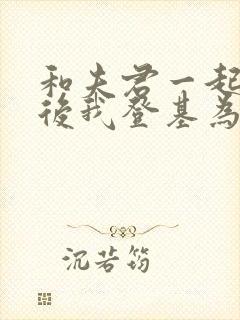 和夫君一起
後我登基為
沉若筠